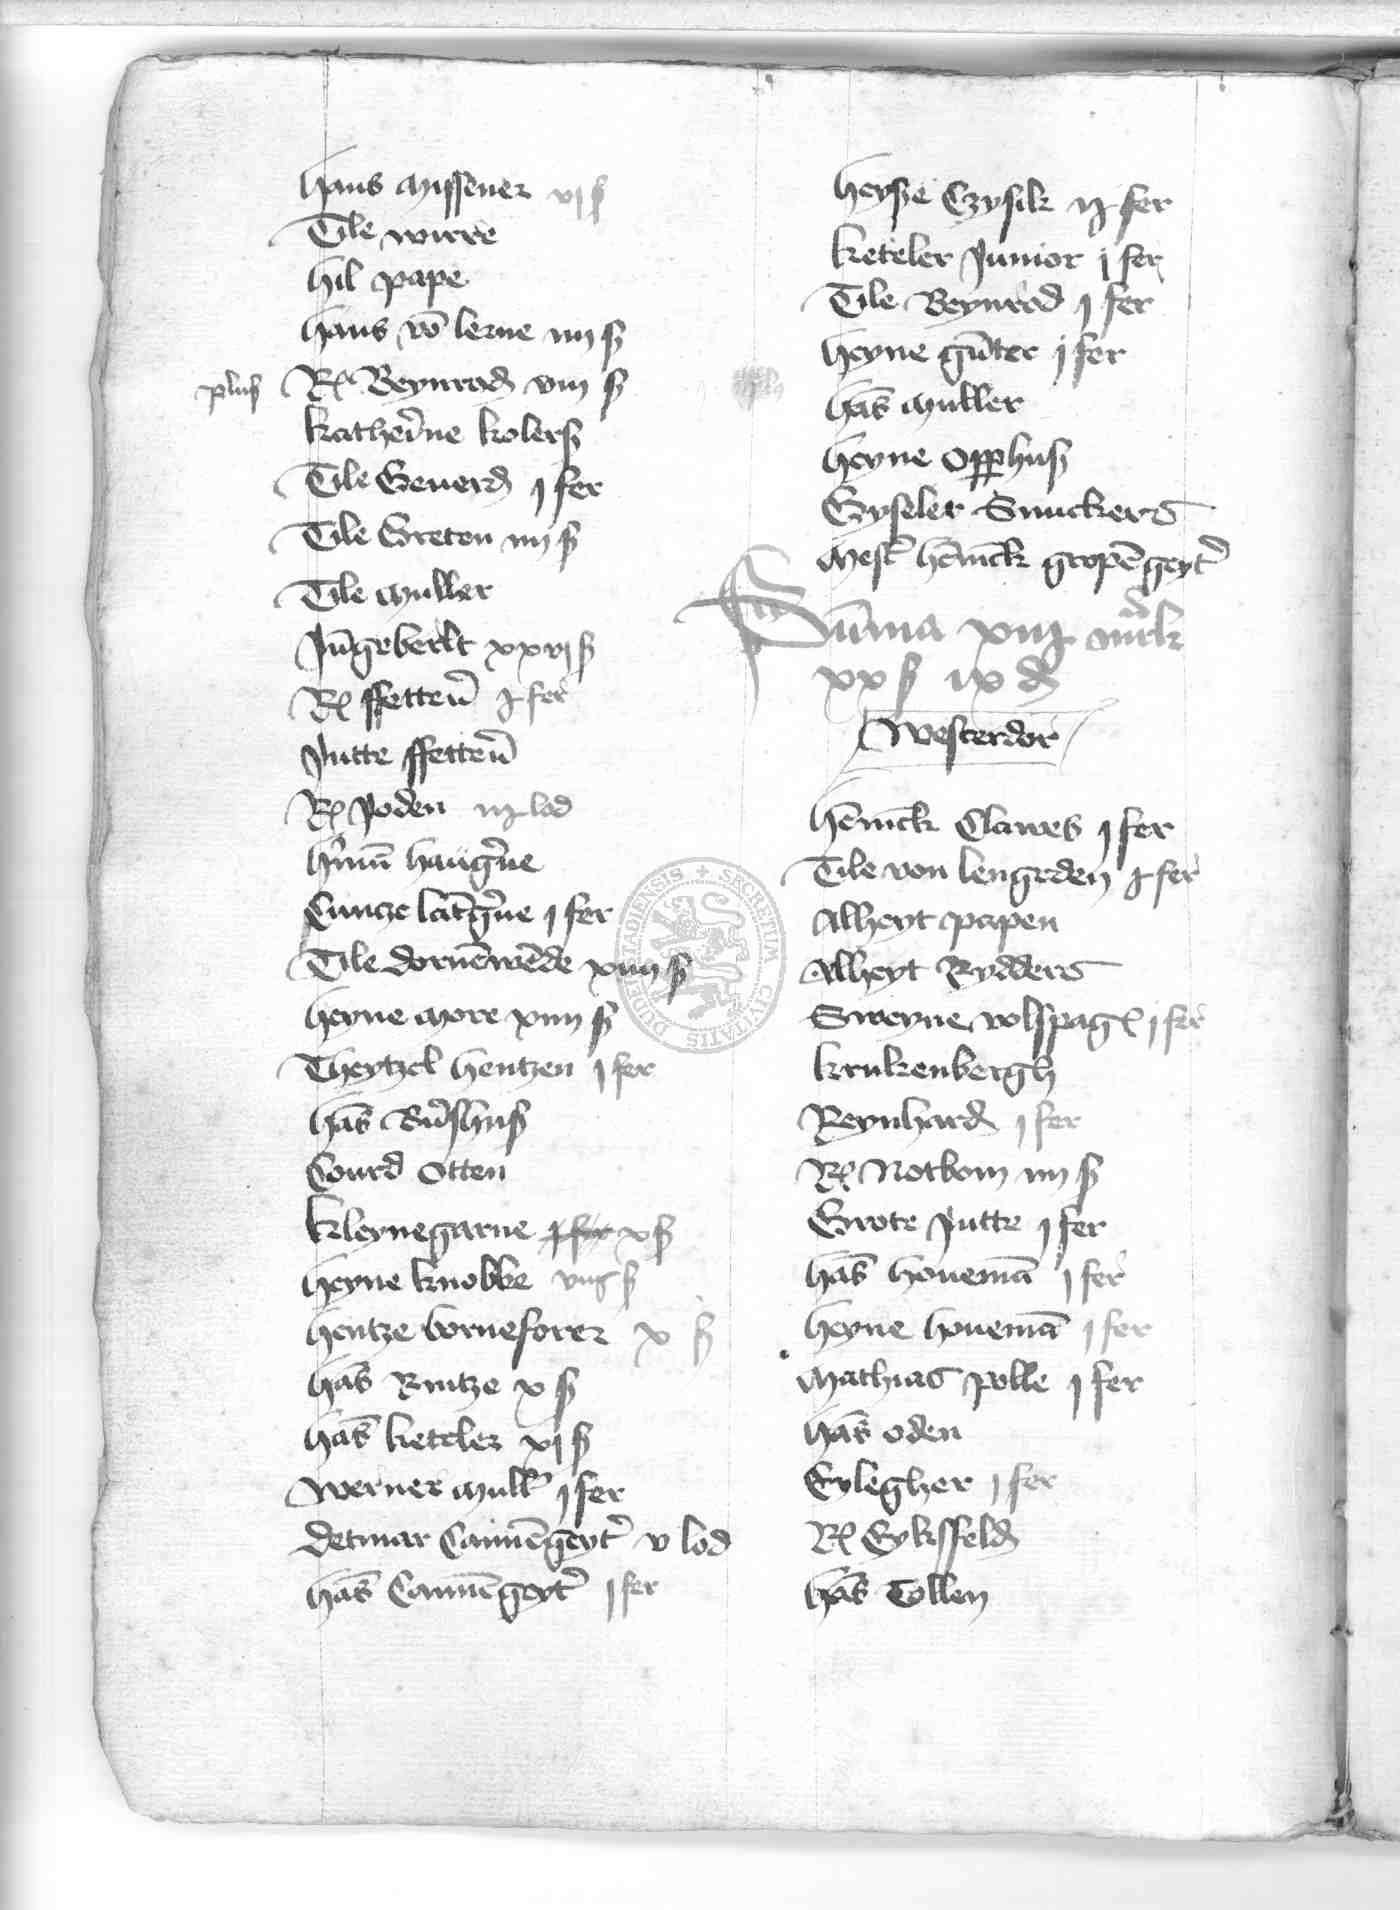 Hans Missener vj ß
Tile Wirre
Hil Pape
Hans vō Lerne iiij ß
plus Rͨ Beynrod viij ß
Katherine Kolerß
Tile Geuerd j fer
Tile Greten iiij ß
Tile Muller
Jūgeberlt xxvj ß
Rͨ ffetten j fer
Jutte ffetten
Rͨ Joden iij lod
Cuntze j fer
Tile Dornēwēde xiiij ß
Heyne More xiiij ß
Theytzel Hentzen j fer
Hās
Courd Otten
Kleynegarne x ß
Heyne Knobbe ß
Hentze Borneforer x ß
Hās Rintze x ß
Hās Keteler xj ß
Werner Mull' j fer
Detmar Cannēgeyt' v lod
Hās Cannēgeyt' j fer
Heyse Czysik ij fer
Keteler Junior j fer
Tile Beynrod j fer
Heyne Gūter j fer
Hās Muller
Heyne Opphuß
Gyseler Snuckers
Mest' Hēnick Gropēgeyt'
Sūma xiij m'rk
xx ß ix d
Westerdor
Hēnick Clawes j fer
Tile von Lengeden j fer
Alheyt Papen
Alheyt Rydders
Sweyne Wolspag' j fer
Krukenbergh
Reynhard j fer
Rͨ Notbom iiij ß
Grote Jutte j fer
Hās Houemā j fer
Heyne Houemā j fer
Mathias Polle j fer
Hās Oden
Eylegher j fer
Rͨ Eyksfeld
Hās Tollen
SECRETUM CIVITATIS DUDERSTADIENSIS